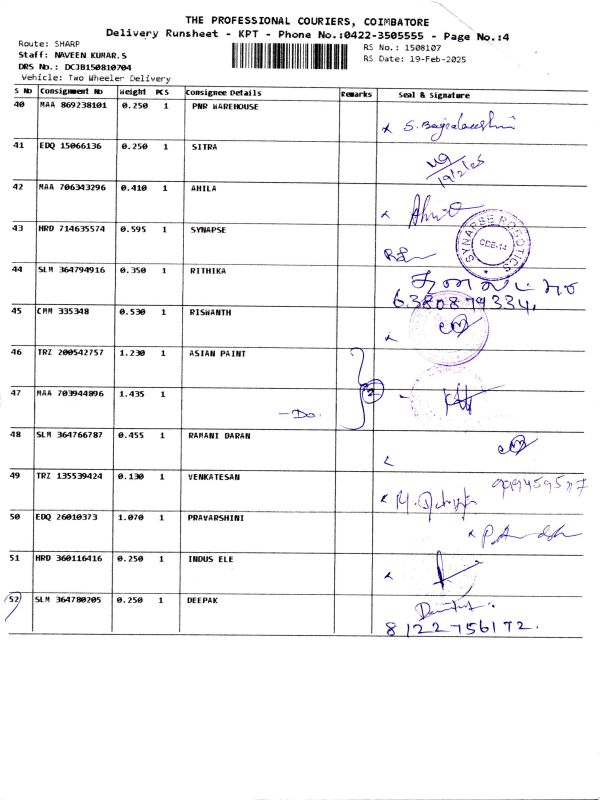 THE PROFESSIONAL COURIERS, COIMBATORE
Delivery Runsheet - KPT - Phone No.:0422-3505555 - Page No.:4
Route: SHARP
RS No.: 1508107
Staff: NAVEEN KUMAR.S
RS Date: 19-Feb-2025
DRS No.: DCJB150810704
Vehicle: Two Wheeler Delivery
S No Consignment No Weight PCS Consignee Details Remarks Seal & Signature
40 MAA 869238101 0.250 1 PNR WAREHOUSE
41 EDQ 15066136 0.250 1 SITRA
19/2/25
42 MAA 706343296 0.410 1 AHILA
43 HRD 714635574 0.595 1 SYNAPSE
SYNAPSE ROBOTICS
CBE-14
44 SLM 364794916 0.350 1 RITHIKA
6380879334,
45 CMM 335348 0.530 1 RISWANTH
46 TRZ 200542757 1.230 1 ASIAN PAINT
2
47 MAA 703944896 1.435 1 -Do.
48 SLM 364766787 0.455 1 RAMANI DARAN
49 TRZ 135539424 0.130 1 VENKATESAN
50 EDQ 26010373 1.070 1 PRAVARSHINI
51 HRD 360116416 0.250 1 INDUS ELE
52 SLM 364780205 0.250 1 DEEPAK
8122756172.